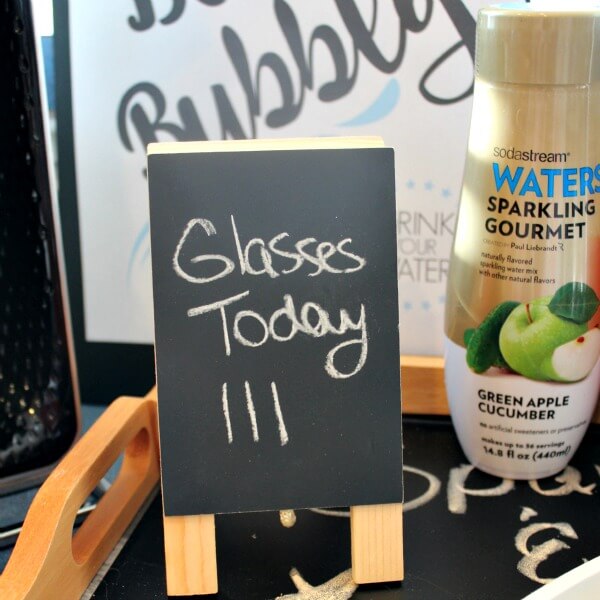 Bubbly
DRINK
YOUR
WATER
Glasses
Today
|||
sodastream®
WATERS
SPARKLING
GOURMET
CREATED BY Paul Liebrandt
naturally flavored
sparkling water mix
with other natural flavors
GREEN APPLE
CUCUMBER
no artificial sweeteners or preservatives
makes up to 56 servings
14.8 fl oz (440ml)